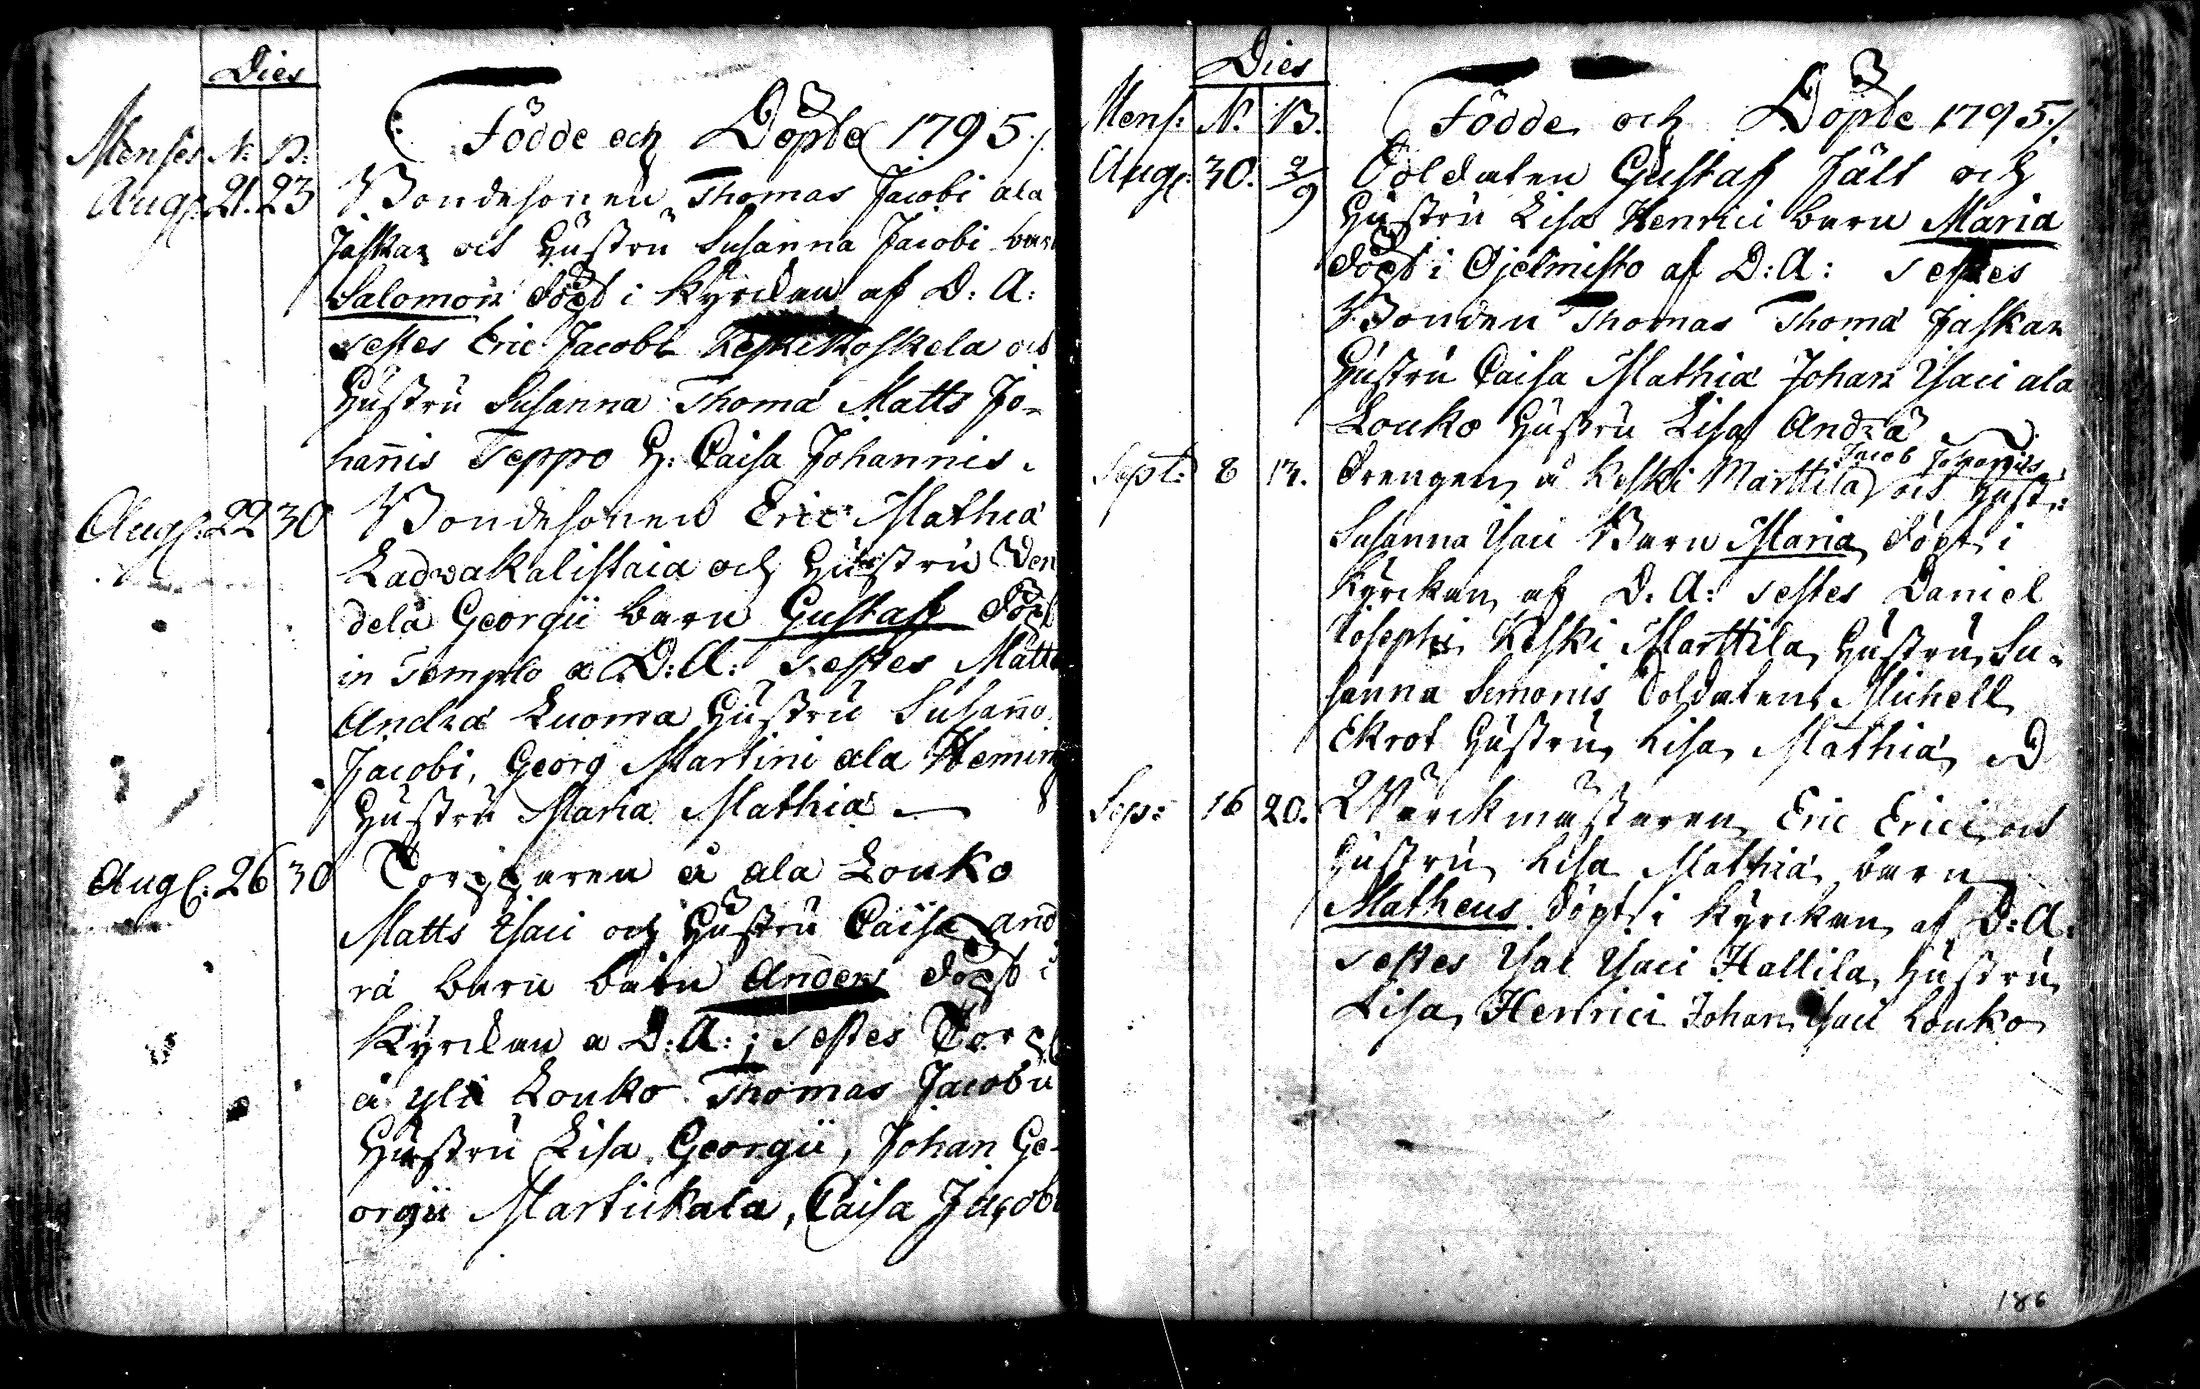 Dies
Födde och Döpte 1795./.
Menses N: B:
Aug: 21. 23 Bondesonen Thomas Jacobi ala
Jaskar och Hustru Susanna Jacobi barn
Salomon döpt i Kyrckan af D: A:
testes Eric Jacobi Keskikoskela och
Hustru Susanna Thomæ Matts Jo-
hannis Teppo H: Caisa Johannis.
Aug: 22 30 Bondesonen Eric Mathiæ
Ladvakalistaia och Hustru Ven
dela Georgii barn Gustaff döpt
in Templo a D: A: testes Matts
Andræ Luoma Hustru Susanna
Jacobi, Georg Martini ala Heming
Hustru Maria Mathiæ
Aug: 26 30 Torpparen å ala Louko
Matts Isaci och Hustru Caisa And
ræ barn barn Anders döpt i
Kyrckan a D: A:; testes Torp
å yli Louko Thomas Jacobi
Hustru Lisa Georgii, Johan Ge-
orgii Martickala, Caisa Jacobi
Dies
Mens: N. B. Födde och Döpte 1795./.
Aug: 30. 2/9 Soldaten Gustaf Fält och
Hustru Lisa Henrici barn Maria
döpt i Ojelmisto af D: A: testes
Bonden Thomas Thomæ Jaskar
Hustru Caisa Mathiæ Johan Isaci ala
Louko Hustru Lisa Andræ
Jacob Johannis
Sept: 8 13. Drengen å Keski Marttila och Hustr:
Susanna Isaci Barn Maria döpt i
Kyrckan af D: A: testes Daniel
Josephi Keski Marttila, Hustru Su-
sanna Simonis Soldaten Michell
Ekrot Hustru Lisa Mathiæ
Sep: 16 20. Wärckmästaren Eric Erici och
Hustru Lisa Mathiæ barn
Matheus döpt i Kyrckan af D: A:
testes Isac Isaci Hallila, Hustru
Lisa Henrici Johan Isaci Louko
186